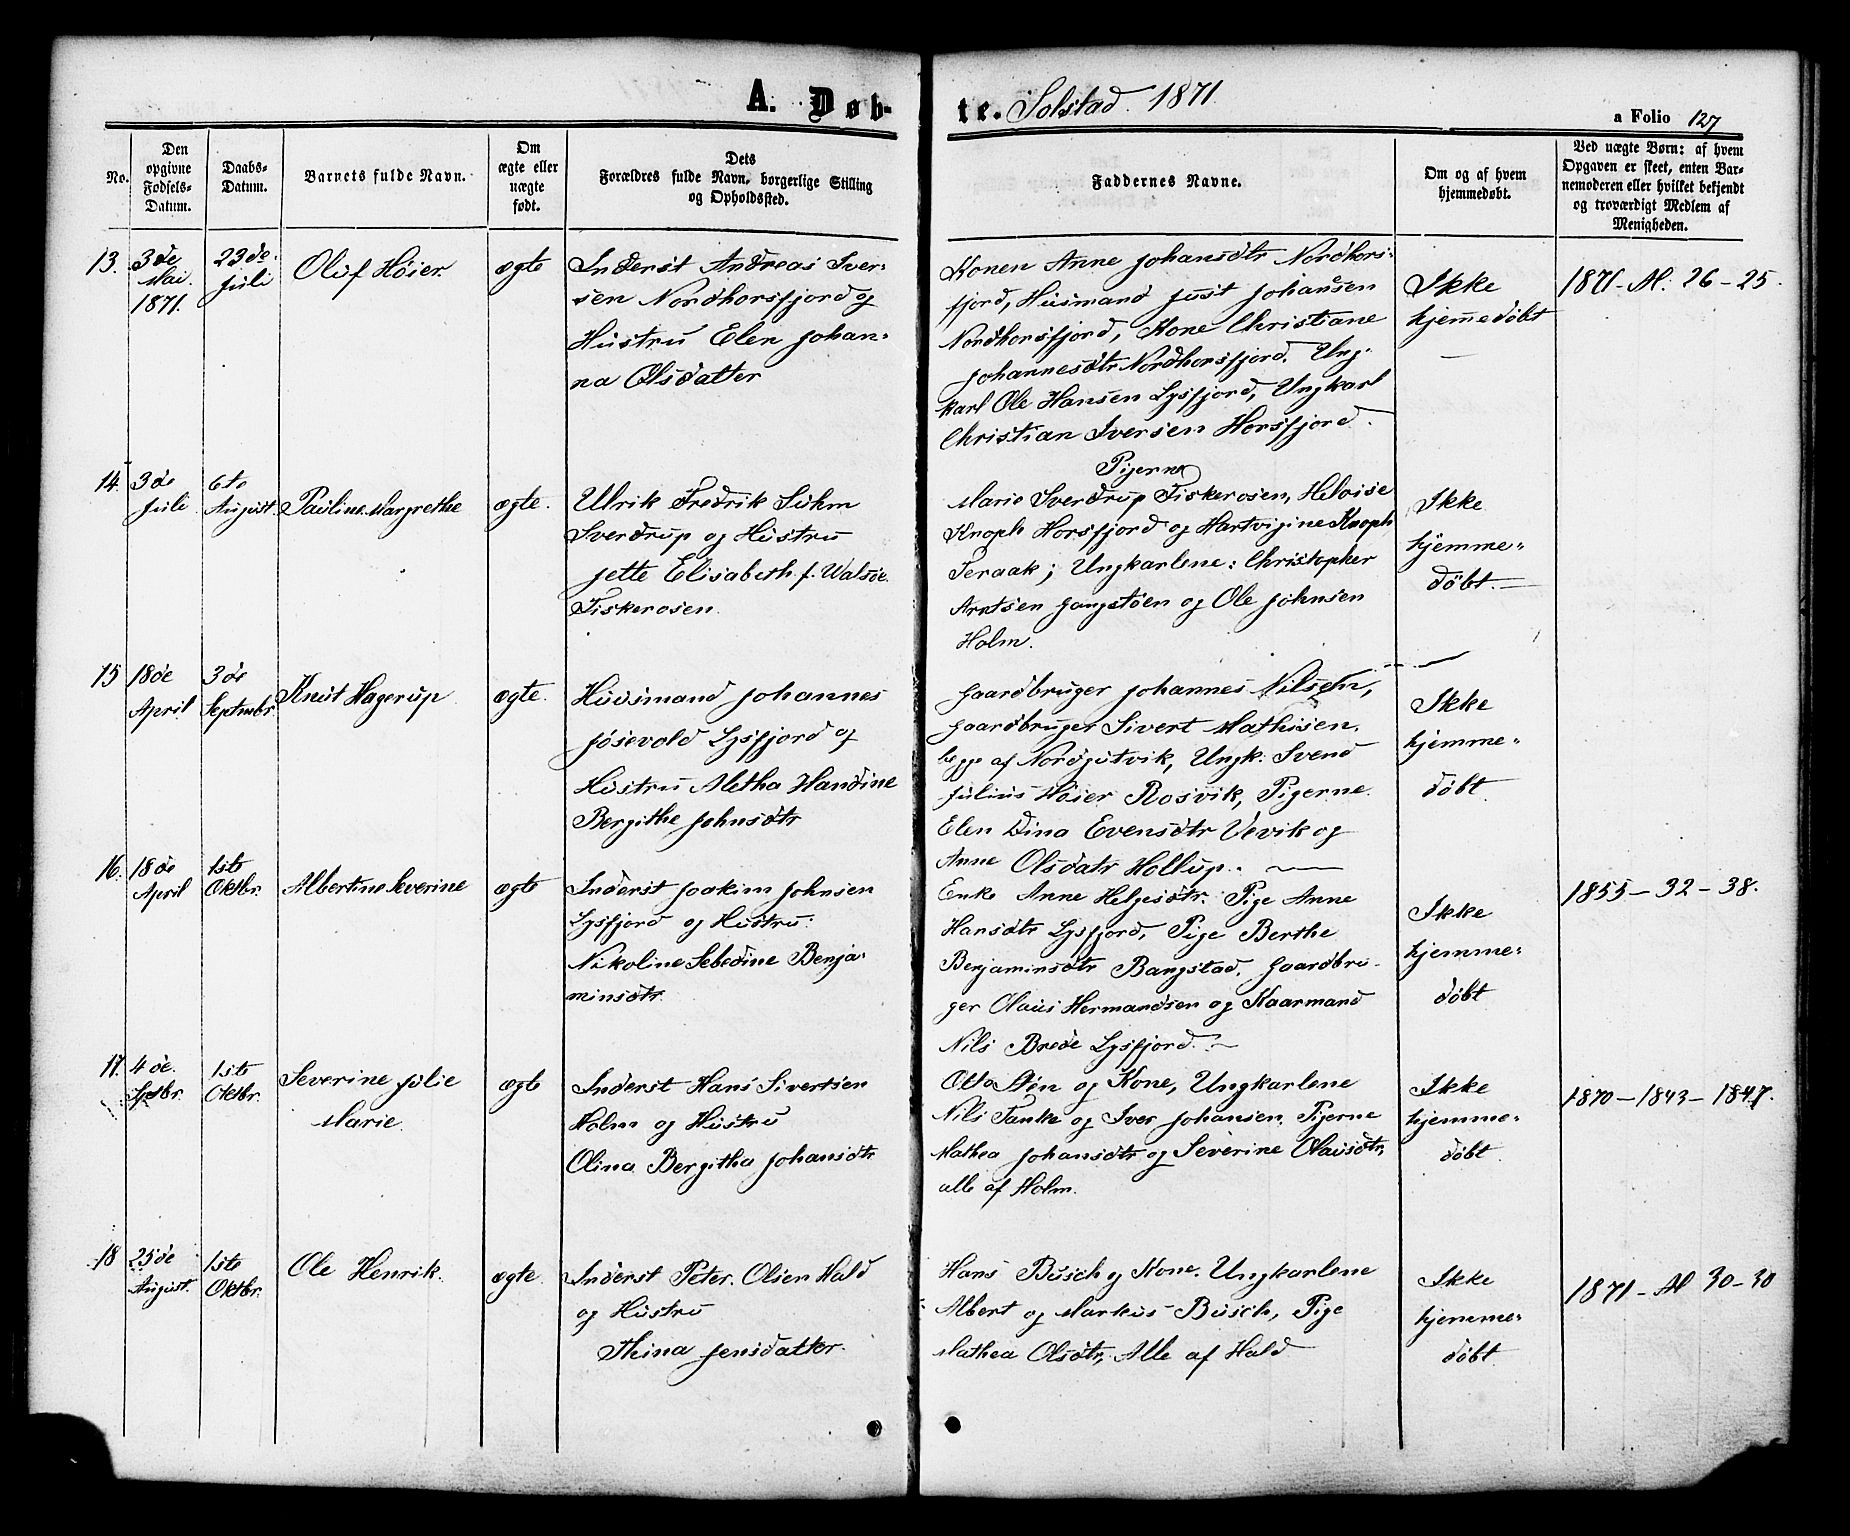 A. Døbte. Solstad 1871
a Folio 127
No.
Den opgivne Fødsels-Datum.
Daabs-Datum.
Barnets fulde Navn.
Om ægte eller uægte født.
Dets Forældres fulde Navn, borgerlige Stilling og Opholdssted.
Faddernes Navne.
Om og af hvem hjemmedøbt.
Ved uægte Børn: af hvem Opgaven er skeet, enten Barnemoderen eller hvilket bekjendt og troværdigt Medlem af Menigheden.
13.
3de
Mai
1871.
23de
Juli
Oluf Høier
ægte
Inderst Andreas Iver-
sen Nordhorsfjord og
Hustru Elen Johan-
na Olsdatter
Konen Anne Johansdtr Nordhors-
fjord, Husmand Just Johansen
Nordhorsfjord, Kone Christiane
Johannesdtr Nordhorsfjord. Ung-
karl Ole Hansen Lysfjord, Ungkarl
Christian Iversen Horsfjord.
Ikke
hjemmedøbt
—
1871 - Al: 26 - 25.
14.
3de
Juli
6te
August.
Pauline Margrethe
ægte.
Ulrik Fredrik Suhm
Sverdrup og Hustru
Jette Elisabeth f. Walsøe
Fiskerosen.
Pigerne
Marie Sverdrup Fiskerosen, Heloise
Knoph Horsfjord og Hartvigine Knoph
Teraak; Ungkarlene: Christopher
Arntsen Gangstøen og Ole Johnsen
Holm.
Ikke
hjemme-
døbt. —
15
18de
April
3de
Septmbr.
Knut Hagerup
ægte.
Huusmand Johannes
Josevold Lysfjord og
Hustru Aletha Handine
Bergithe Johnsdtr
Gaardbruger Johannes Nilsen,
Gaardbruger Sivert Mathisen,
begge af Nordgutvik, Ungk. Svend
Julius Høier Rosvik, Pigerne
Elen Dina Evensdtr Vevik og
Anne Olsdatr Hollup. —
Ikke
hjemme-
døbt.
16.
18de
April
1ste
Oktbr.
Albertine Severine
ægte
Inderst Joakim Johnsen
Lysfjord og Hustru:
Nikoline Sebedine Benja-
minsdtr.
Enke Anne Helgesdtr. Pige Anne
Hansdtr Lysfjord, Pige Berthe
Benjaminsdtr Bangstad, Gaardbru-
ger Olaus Hermandsen og Kaarmand
Nils Brede Lysfjord. —
Ikke
hjemme-
døbt
1855 - 32 - 38.
17.
4de.
Sptbr.
1ste
Oktbr.
Severine Julie
Marie.
ægte
Inderst Hans Sivertsen
Holm og Hustru
Olina Bergitha Johansdtr
Otto Støn og Kone, Ungkarlene
Nils Tanke og Iver Johansen. Pigerne
Mathea Johansdtr og Severine Olausdtr,
alle af Holm.
Ikke
hjemme-
døbt.
1870 - 1843 - 1847.
18
25de
August.
1ste
Oktbr.
Ole Henrik.
ægte.
Inderst Peter Olsen Hald
og Hustru
Thina Jensdatter.
Hans Busch og Kone. Ungkarlene
Albert og Markus Busch, Pige
Mathea Olsdtr, Alle af Hald
Ikke
hjemme-
døbt
1871 - Al 30 - 30